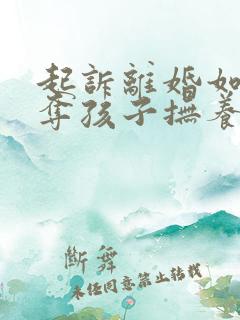 起訴離婚如
奪孩子撫養
斷舞
未經同意禁止轉載